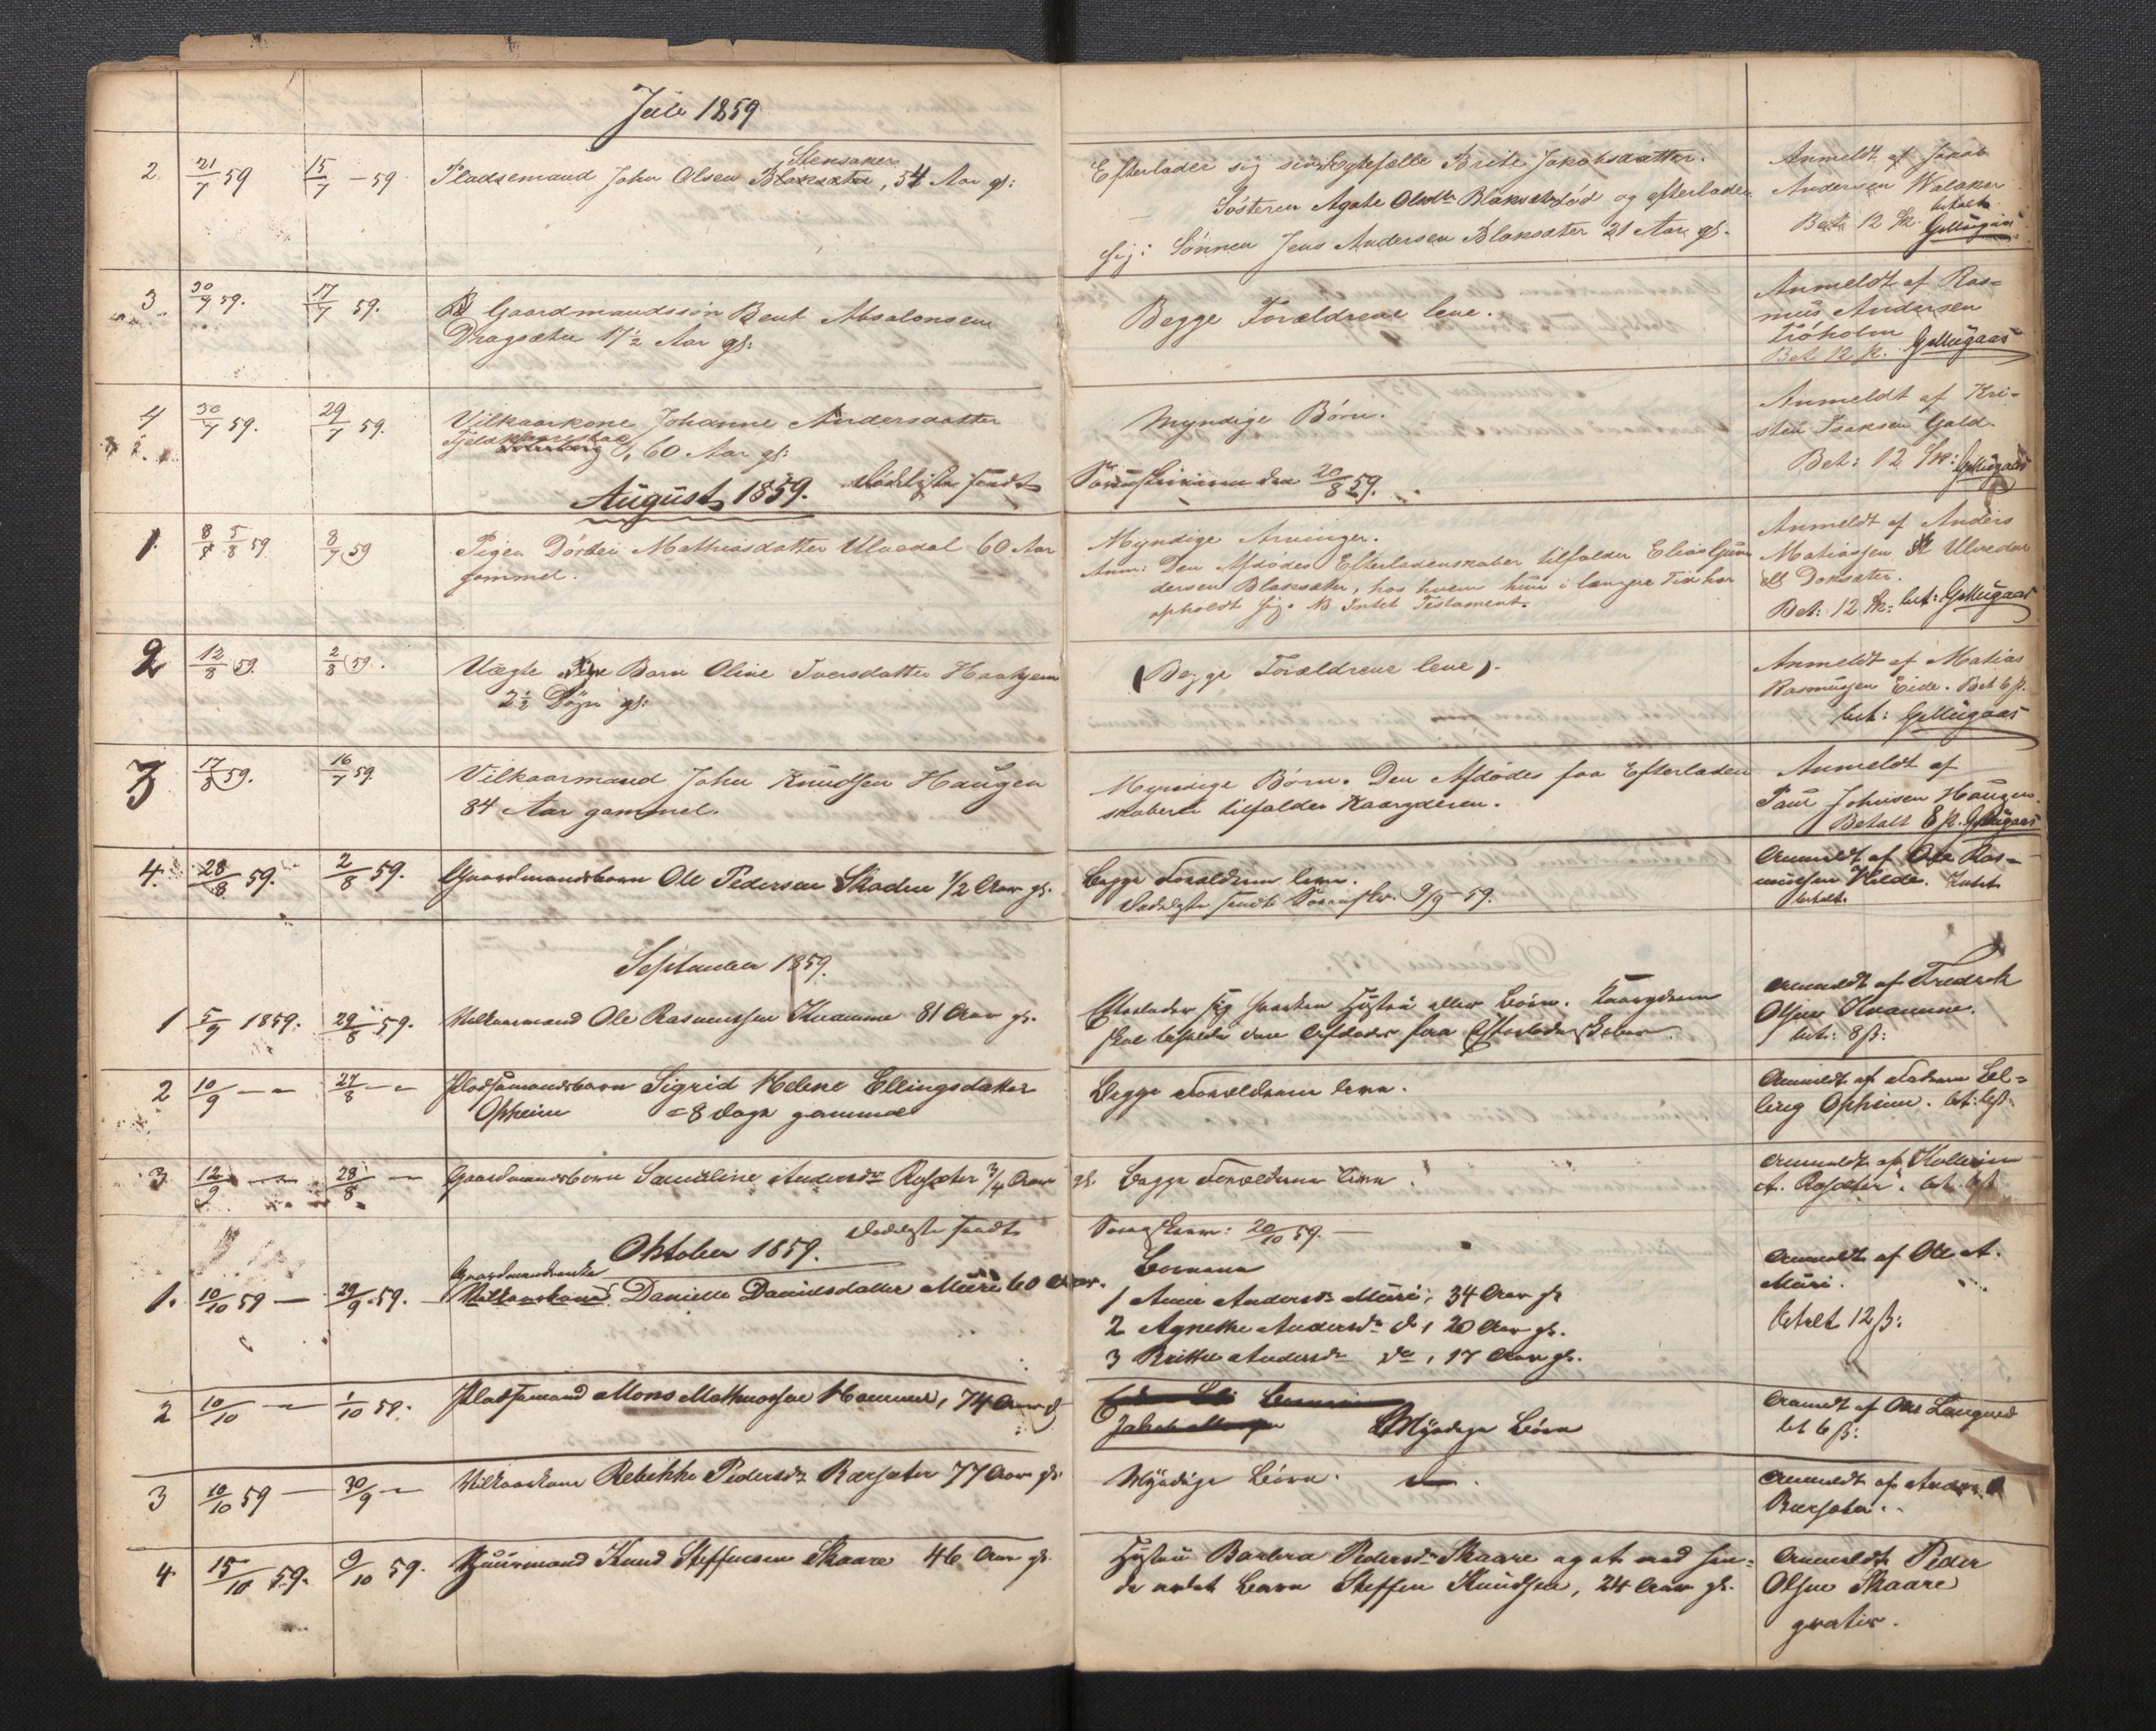 Juli 1859
2 21/7 59 15/7 - 59 Pladsemand John Olsen Blaksæter, 54 Aar gl:
Stensaker
Efterlader sig sin Ægtefælle Brite Jakobsdatter.
Søsteren Agate Olsdtr Blaksæter død og efterlader
sig: Sønnen Jens Andersen Blaksæter 21 Aar gl.
Anmeldt af Jakob
Andersen Walaker
Bet 12 sk.
3 30/7 59. 17/7 59. Gaardmandssøn Bent Absalonsen
Dragsæter 17 1/2 Aar gl:
Begge Forældrene leve.
Anmeldt af Ras=
mus Andersen
Frøholm
Bet 12 sk.
4 30/7 59. 29/7 59. Vilkaarkone Johanne Andersdatter
60 Aar gl:
Myndige Børn.
Anmeldt af Kri-
sten Isaksen Gald
Bet: 12 Sk:
August 1859. Dødsliste sendt
Sorenskriveren den 20/8 59.
1. 8/8 5/8 59 8/7 59 Pigen Dorthe Mathiasdatter Ulvedal 60 Aar
gammel.
Myndige Arvinger.
Anm: Den Afdødes Efterladenskaber tilfalder Elias Gun
dersen Blaksæter, hos hvem hun i længere Tid har
opholdt sig. NB Intet Testament.
Anmeldt af Anders
Matiassen Ulvedal
Doksæter.
Bet: 12 Sk: bet:
2 12/8 59. 2/8 59. Uægte Barn Oline Iversdatter Haahjem
2 1/2 Døgn gl:
(Begge Forældrene leve).
Anmeldt af Matias
Rasmussen Eide. Bet 6 sk.
bet:
3 17/8 59. 16/7 59. Vilkaarmand John Knudsen Haugen
84 Aar gammel.
Myndige Børn. Den Afdødes faa Efterladen
skaber tilfalder Kaaryderen.
Anmeldt af
Paul Johnsen Haugen.
Betalt 8 sk.
4. 28/8 59. 2/8 59. Gaardmandsbarn Ole Pedersen Skaden 1/2 Aar gl.
Begge Forældrene leve.
Dødsliste sendt Sorenskr. 9/9 - 59.
Anmeldt af Ole Ras=
mussen Hilde. Intet
betalt.
September 1859.
1 5/9 1859. 29/8 59. Vilkaarmand Ole Rasmussen Kvamme 81 Aar gl.
Efterlader sig hverken Hustru eller Børn. Kaaryderen
skal beholde den Afdødes faa Efterladenskaber.
Anmeldt af Fredrik
Olsen Kvamme.
bet: 8 sk:
2 10/9 - - 27/8 - - Pladsemandsbarn Sigrid Helene Ellingsdatter
Opheim = 8 Dage gammel
Begge Forældrene leve.
Anmeldt af Faderen El=
ling Opheim. bet: 6 sk.
3 12/9 - 28/8 - Gaardmandsbarn Samuline Andersdtr Rosæter 3/4 Aar
gl. Begge Forældrene leve.
Anmeldt af
A. Rosæter. bet 6 sk
Oktober 1859. Dødsliste sendt
Sorenskriver: 20/10 59. -
1. 10/10 59 - 29/9 - 59. - Gaardmandsenke
Danielle Danielsdatter Muri 60 Aar.
Børnene
1 Anne Andersdtr Muri, 34 Aar gl
2 Agnethe Andersdtr do, 20 Aar gl.
3 Britthe Andersdtr do, 17 Aar gl.
Anmeldt af Ole A.
Muri.
betalt 12 sk:
2 10/10 - 1/10 59. Pladsemand Mons Mathiassen Hammer, 74 Aar gl
Myndige Børn
Anmeldt af Ole Langned
bet 6 sk:
3 10/10 59 - 30/9 - Vilkaarkone Rebekka Pedersdtr Rørsæter 77 Aar gl.
Myndige Børn.
Anmeldt af Anders
Rørsæter.
4 15/10 59. 9/10 59. Huusmand Knud Steffensen Skaare 46 Aar gl.
Hustru Barbra Pedersdtr Skaare og et med hen-
de avlet Barn Steffen Knudsen, 24 Aar gl.
Anmeldt Peder
Olsen Skaare
gratis.